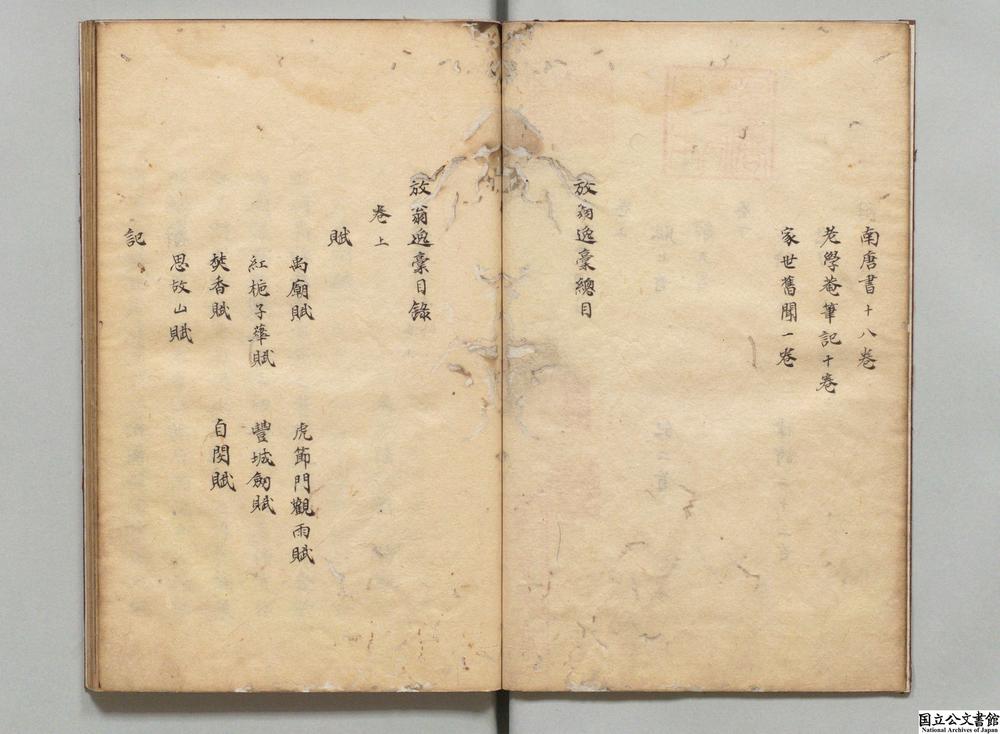 南唐書十八卷
老學菴筆記十卷
家世舊聞一卷
放翁逸槀總目
放翁逸槀目錄
卷上
賦
禹廟賦　虎節門觀雨賦
紅梔子華賦　豐城劔賦
焚香賦　自閔賦
思故山賦
記
国立公文書館
National Archives of Japan